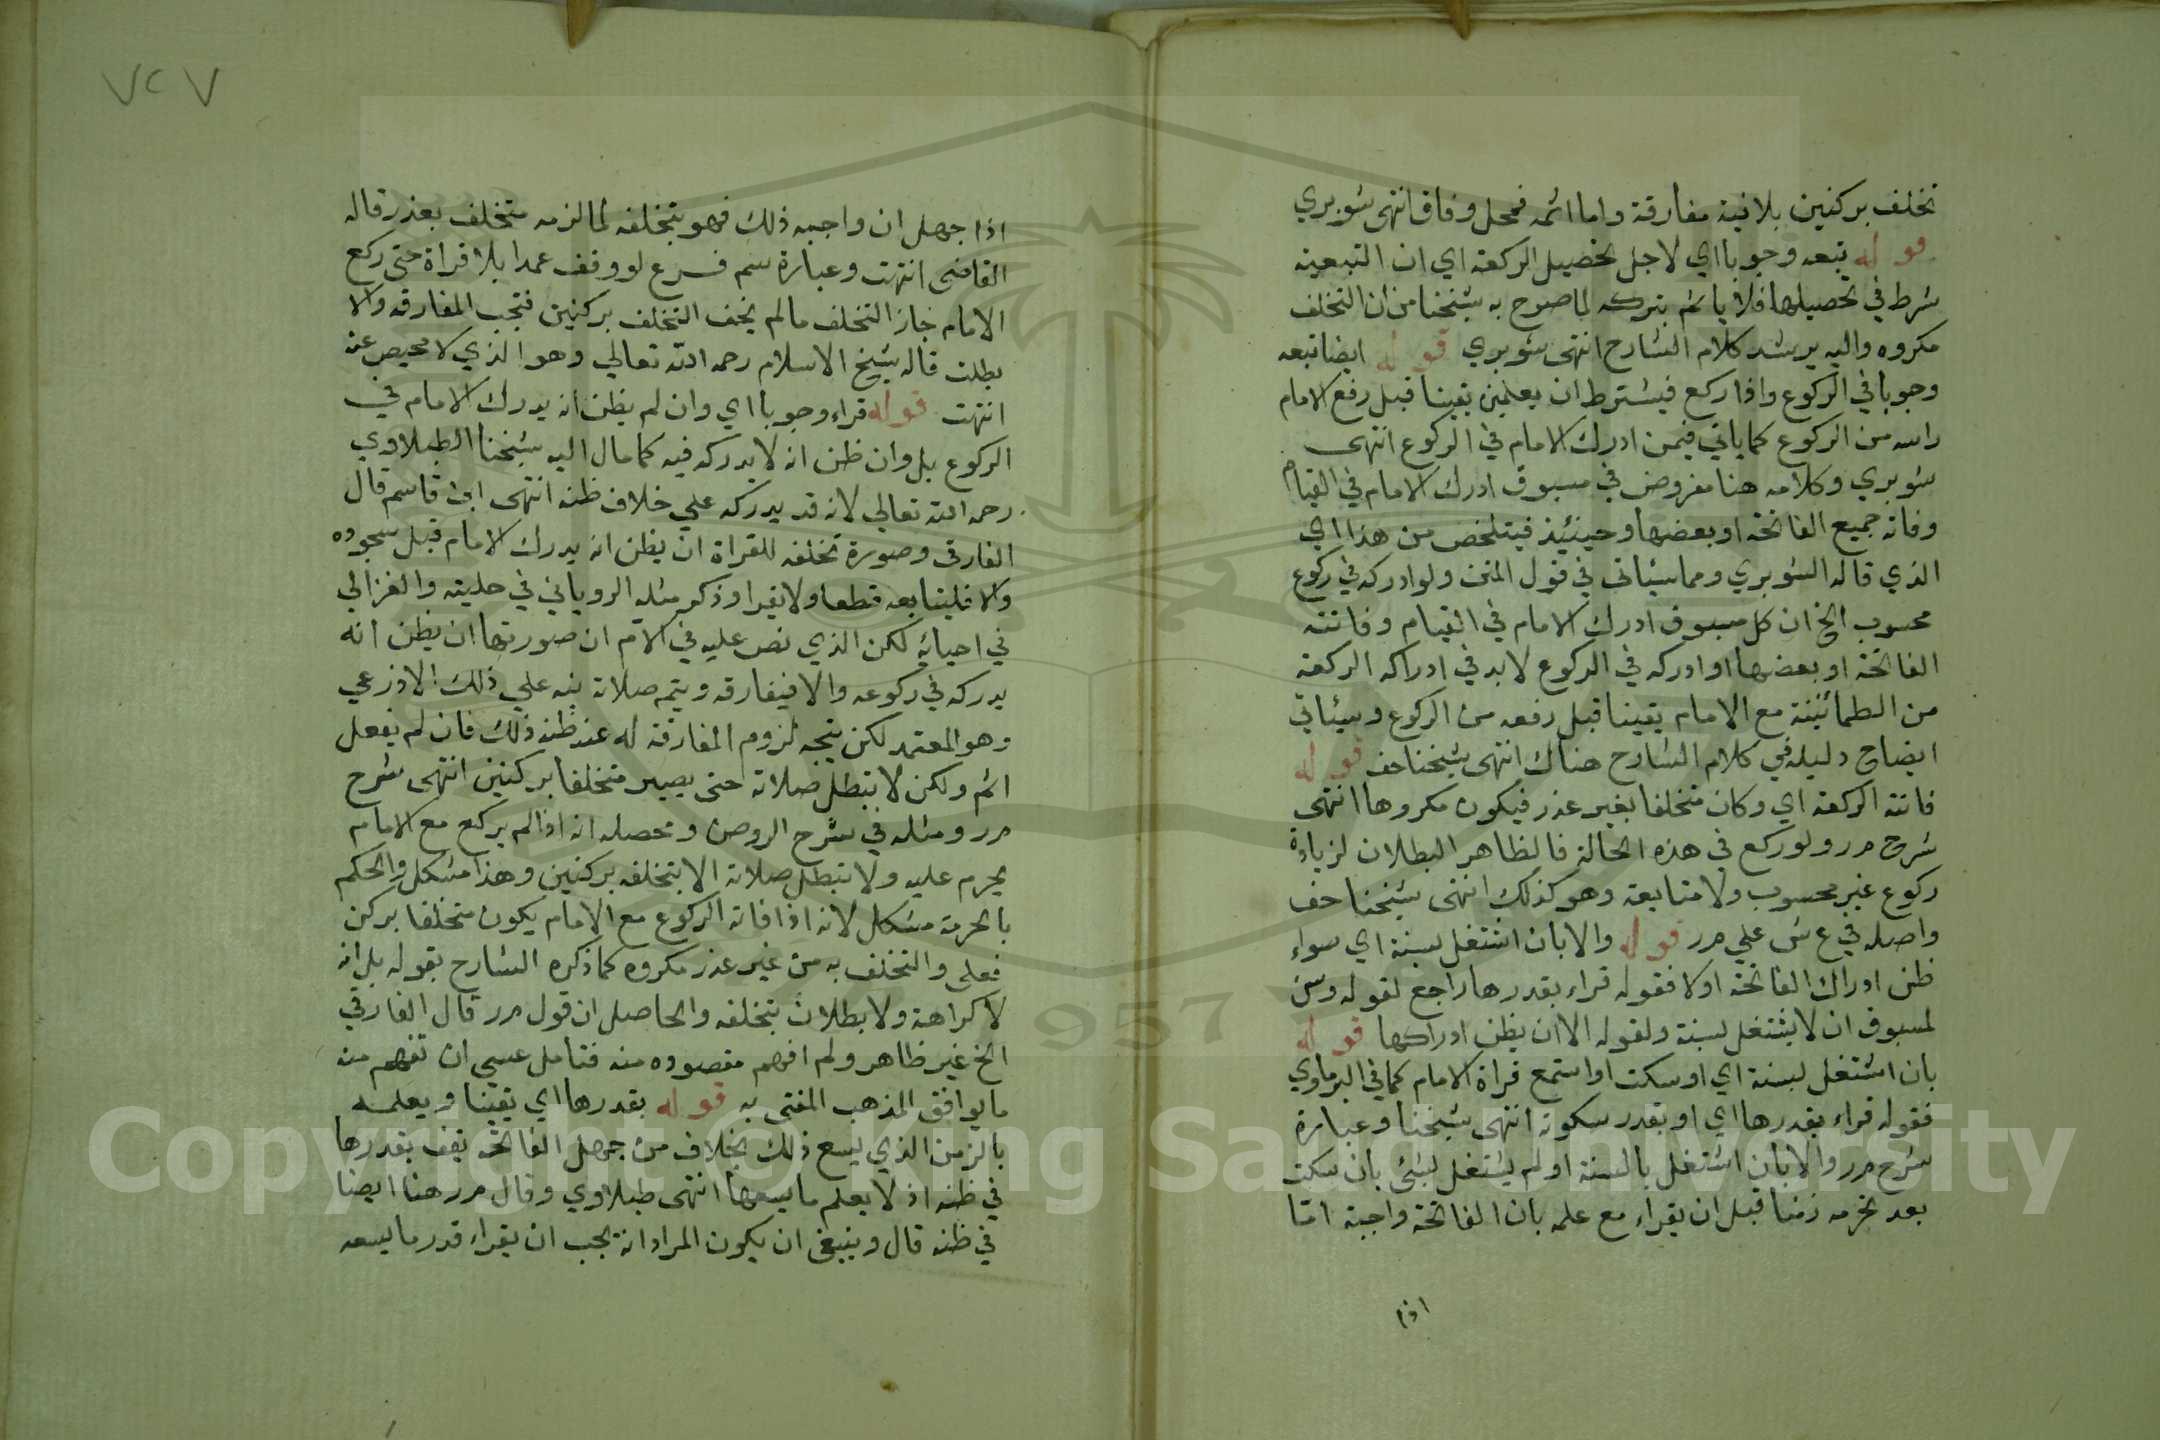 تخلف بركنين بلا نية مفارقة واما اثمه فمحل وفاق انتهى شوبري
قوله تبعه وجوبا اي لاجل تحصيل الركعة اي ان التبعية
شرط في تحصيلها فلا ياثم بتركه لما صرح به شيخنا من ان التخلف
مكروه واليه يرشد كلام الشارح انتهى شوبري قوله ايضا تبعه
وجوبا في الركوع واذا ركع فيشترط ان يطمئن يقينا قبل رفع الامام
راسه من الركوع كما ياتي فيمن ادرك الامام في الركوع انتهى
شوبري وكلامه هنا مفروض في مسبوق ادرك الامام في القيام
وفاته جميع الفاتحة او بعضها وحينئذ فيتلخص من هذا اي
الذي قاله الشوبري ومما سياتي في قول المتن ولو ادركه في ركوع
محسوب الخ ان كل مسبوق ادرك الامام في القيام وفاتته
الفاتحة او بعضها او ادركه في الركوع لا بد في ادراكه الركعة
من الطمانينة مع الامام يقينا قبل رفعه من الركوع وسياتي
ايضاح دليله في كلام الشارح هناك انتهى شيخنا حف قوله
فاتته الركعة اي وكان متخلفا بغير عذر فيكون مكروها انتهى
شرح مر ولو ركع في هذه الحالة فالظاهر البطلان لزيادة
ركوع غير محسوب ولا متابعة وهو كذلك انتهى شيخنا حف
واصله في ع ش علي مر قوله والا بان اشتغل بسنة اي سواء
ظن ادراك الفاتحة اولا فقوله قراء بقدرها راجع لقوله وسن
لمسبوق ان لا يشتغل بسنة ولقوله الا ان يظن ادراكها قوله
بان اشتغل بسنة اي او سكت او استمع قراة الامام كما في البرماوي
فقوله قراء بقدرها اي او بقدر سكوته انتهى شيخنا وعبارة
شرح مر والا بان اشتغل بالسنة او لم يشتغل بشئ بان سكت
بعد تحرمه زمنا قبل ان يقراء مع علمه بان الفاتحة واجبة اما
اذا
٧٢٧
اذا جهل ان واجبه ذلك فهو بتخلفه لما لزمه متخلف بعذر قاله
القاضى انتهت وعبارة سم فرع لو وقف عمدا بلا قراة حتى ركع
الامام جاز التخلف ما لم يخف التخلف بركنين فتجب المفارقه والا
بطلت قاله شيخ الاسلام رحمه الله تعالي وهو الذي لا محيص عنه
انتهت قوله قراء وجوبا اي وان لم يظن انه يدرك الامام في
الركوع بل وان ظن انه لا يدركه فيه كما مال اليه شيخنا الطبلاوي
رحمه الله تعالي لانه قد يدركه علي خلاف ظنه انتهى ابن قاسم قال
الفارقى وصورة تخلفه للقراة ان يظن انه يدرك الامام قبل سجوده
والا فليتابعه قطعا ولا يقرا وذكر مثله الروياني في حليته والغزالي
في احيائه لكن الذي نص عليه في الام ان صورتها ان يظن انه
يدركه في ركوعه والا فيفارقه ويتم صلاته نبه علي ذلك الاذرعي
وهو المعتمد لكن يتجه لزوم المفارقة له عند ظنه ذلك فان لم يفعل
اثم ولكن لا تبطل صلاته حتى يصير متخلفا بركنين انتهى شرح
مر ومثله في شرح الروض ومحصله انه اذا لم يركع مع الامام
يحرم عليه ولا تبطل صلاته الا بتخلفه بركنين وهذا مشكل والحكم
بالحرمة مشكل لانه اذا فاته الركوع مع الامام يكون متخلفا بركن
فعلى والتخلف به من غير عذر مكروه كما ذكره الشارح بقوله بل انه
لا كراهة ولا بطلان بتخلفه والحاصل ان قول مر قال الفارقي
الخ غير ظاهر ولم افهم مقصوده منه فتامل عسي ان تفهم منه
ما يوافق المذهب المفتى به قوله بقدرها اي يقينا ويعلمه
بالزمن الذي يسع ذلك بخلاف من جهل الفاتحة يقف بقدرها
في ظنه اذ لا يعلم ما يسعها انتهى طبلاوي وقال مر هنا ايضا
في ظنه قال وينبغى ان يكون المراد انه يجب ان يقراء قدر ما يسعه
957
Copyright © King Saud University